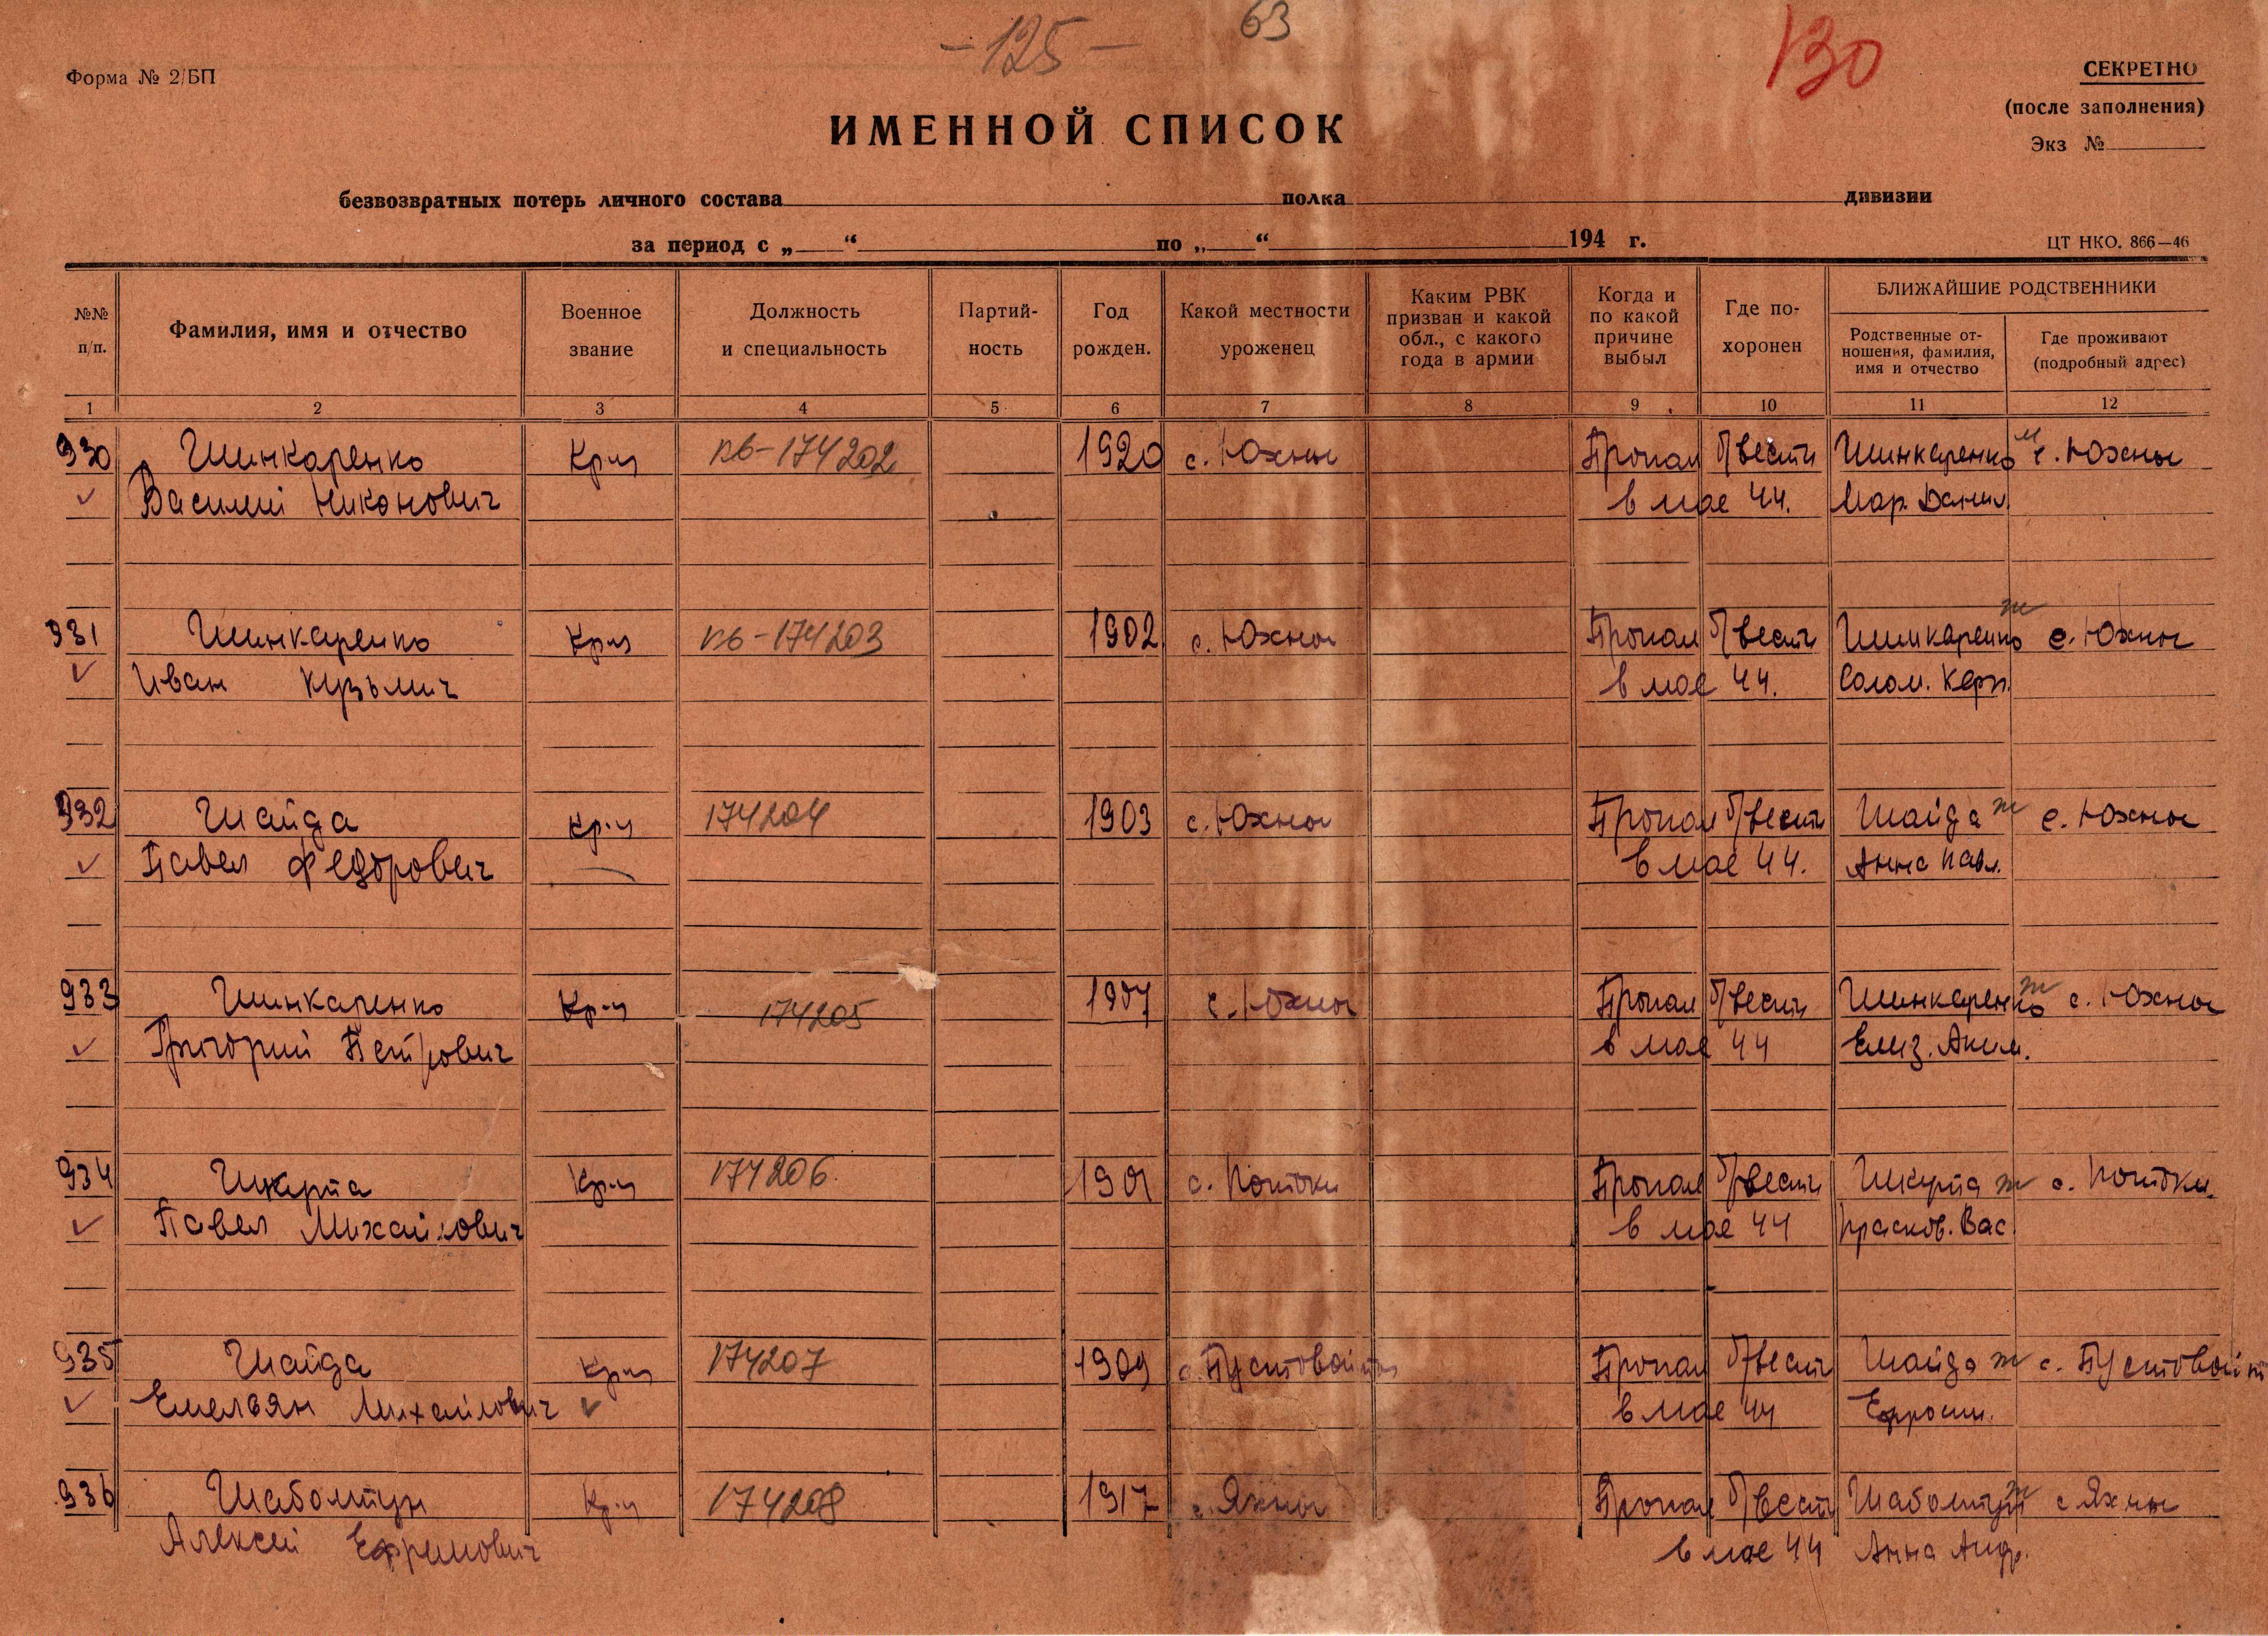 - 125 -
63
130
Форма № 2/БП
СЕКРЕТНО
(после заполнения)
Экз №
ИМЕННОЙ СПИСОК
безвозвратных потерь личного состава полка дивизии
за период с „ “ по „ “ 194 г.
ЦТ НКО. 866—46
№№ п/п.
Фамилия, имя и отчество
Военное звание
Должность и специальность
Партий-ность
Год рожден.
Какой местности уроженец
Каким РВК призван и какой обл., с какого года в армии
Когда и по какой причине выбыл
Где по-хоронен
БЛИЖАЙШИЕ РОДСТВЕННИКИ
Родственные от-ношения, фамилия, имя и отчество
Где проживают (подробный адрес)
1 2 3 4 5 6 7 8 9 10 11 12
930 Шинкаренко Кр-ц пв-174202 1920 с. Южны Пропал б/вести Шинкаренко м с. Южны
Василий Никонович в мае 44. Мар. Данил.
931 Шинкаренко Кр-ц пв-174203 1902 с. Южны Пропал б/вести Шинкаренко ж с. Южны
Иван Кузьмич в мае 44. Солом. Карп.
932 Шайда кр-ц 174204 1903 с. Южны Пропал б/вести Шайда ж с. Южны
Павел Федорович в мае 44. Анна Павл.
933 Шинкаренко Кр-ц 174205 1907 с. Южны Пропал б/вести Шинкаренко ж с. Южны
Григорий Петрович в мае 44 Елиз. Аким.
934 Шкурпа Кр-ц 174206 1901 с. Потоки Пропал б/вести Шкурпа ж с. Потоки.
Павел Михайлович в мае 44 Прасков. Вас.
935 Шайда Кр-ц 174207 1909 с. Пустовойты Пропал б/вести Шайда ж с. Пустовойт
Емельян Михайлович в мае 44 Ефросин.
936 Шаболтун Кр-ц 174208 1917 с. Яхны Пропал б/вести Шаболтун ж с Яхны
Алексей Ефримович в мае 44 Анна Андр.